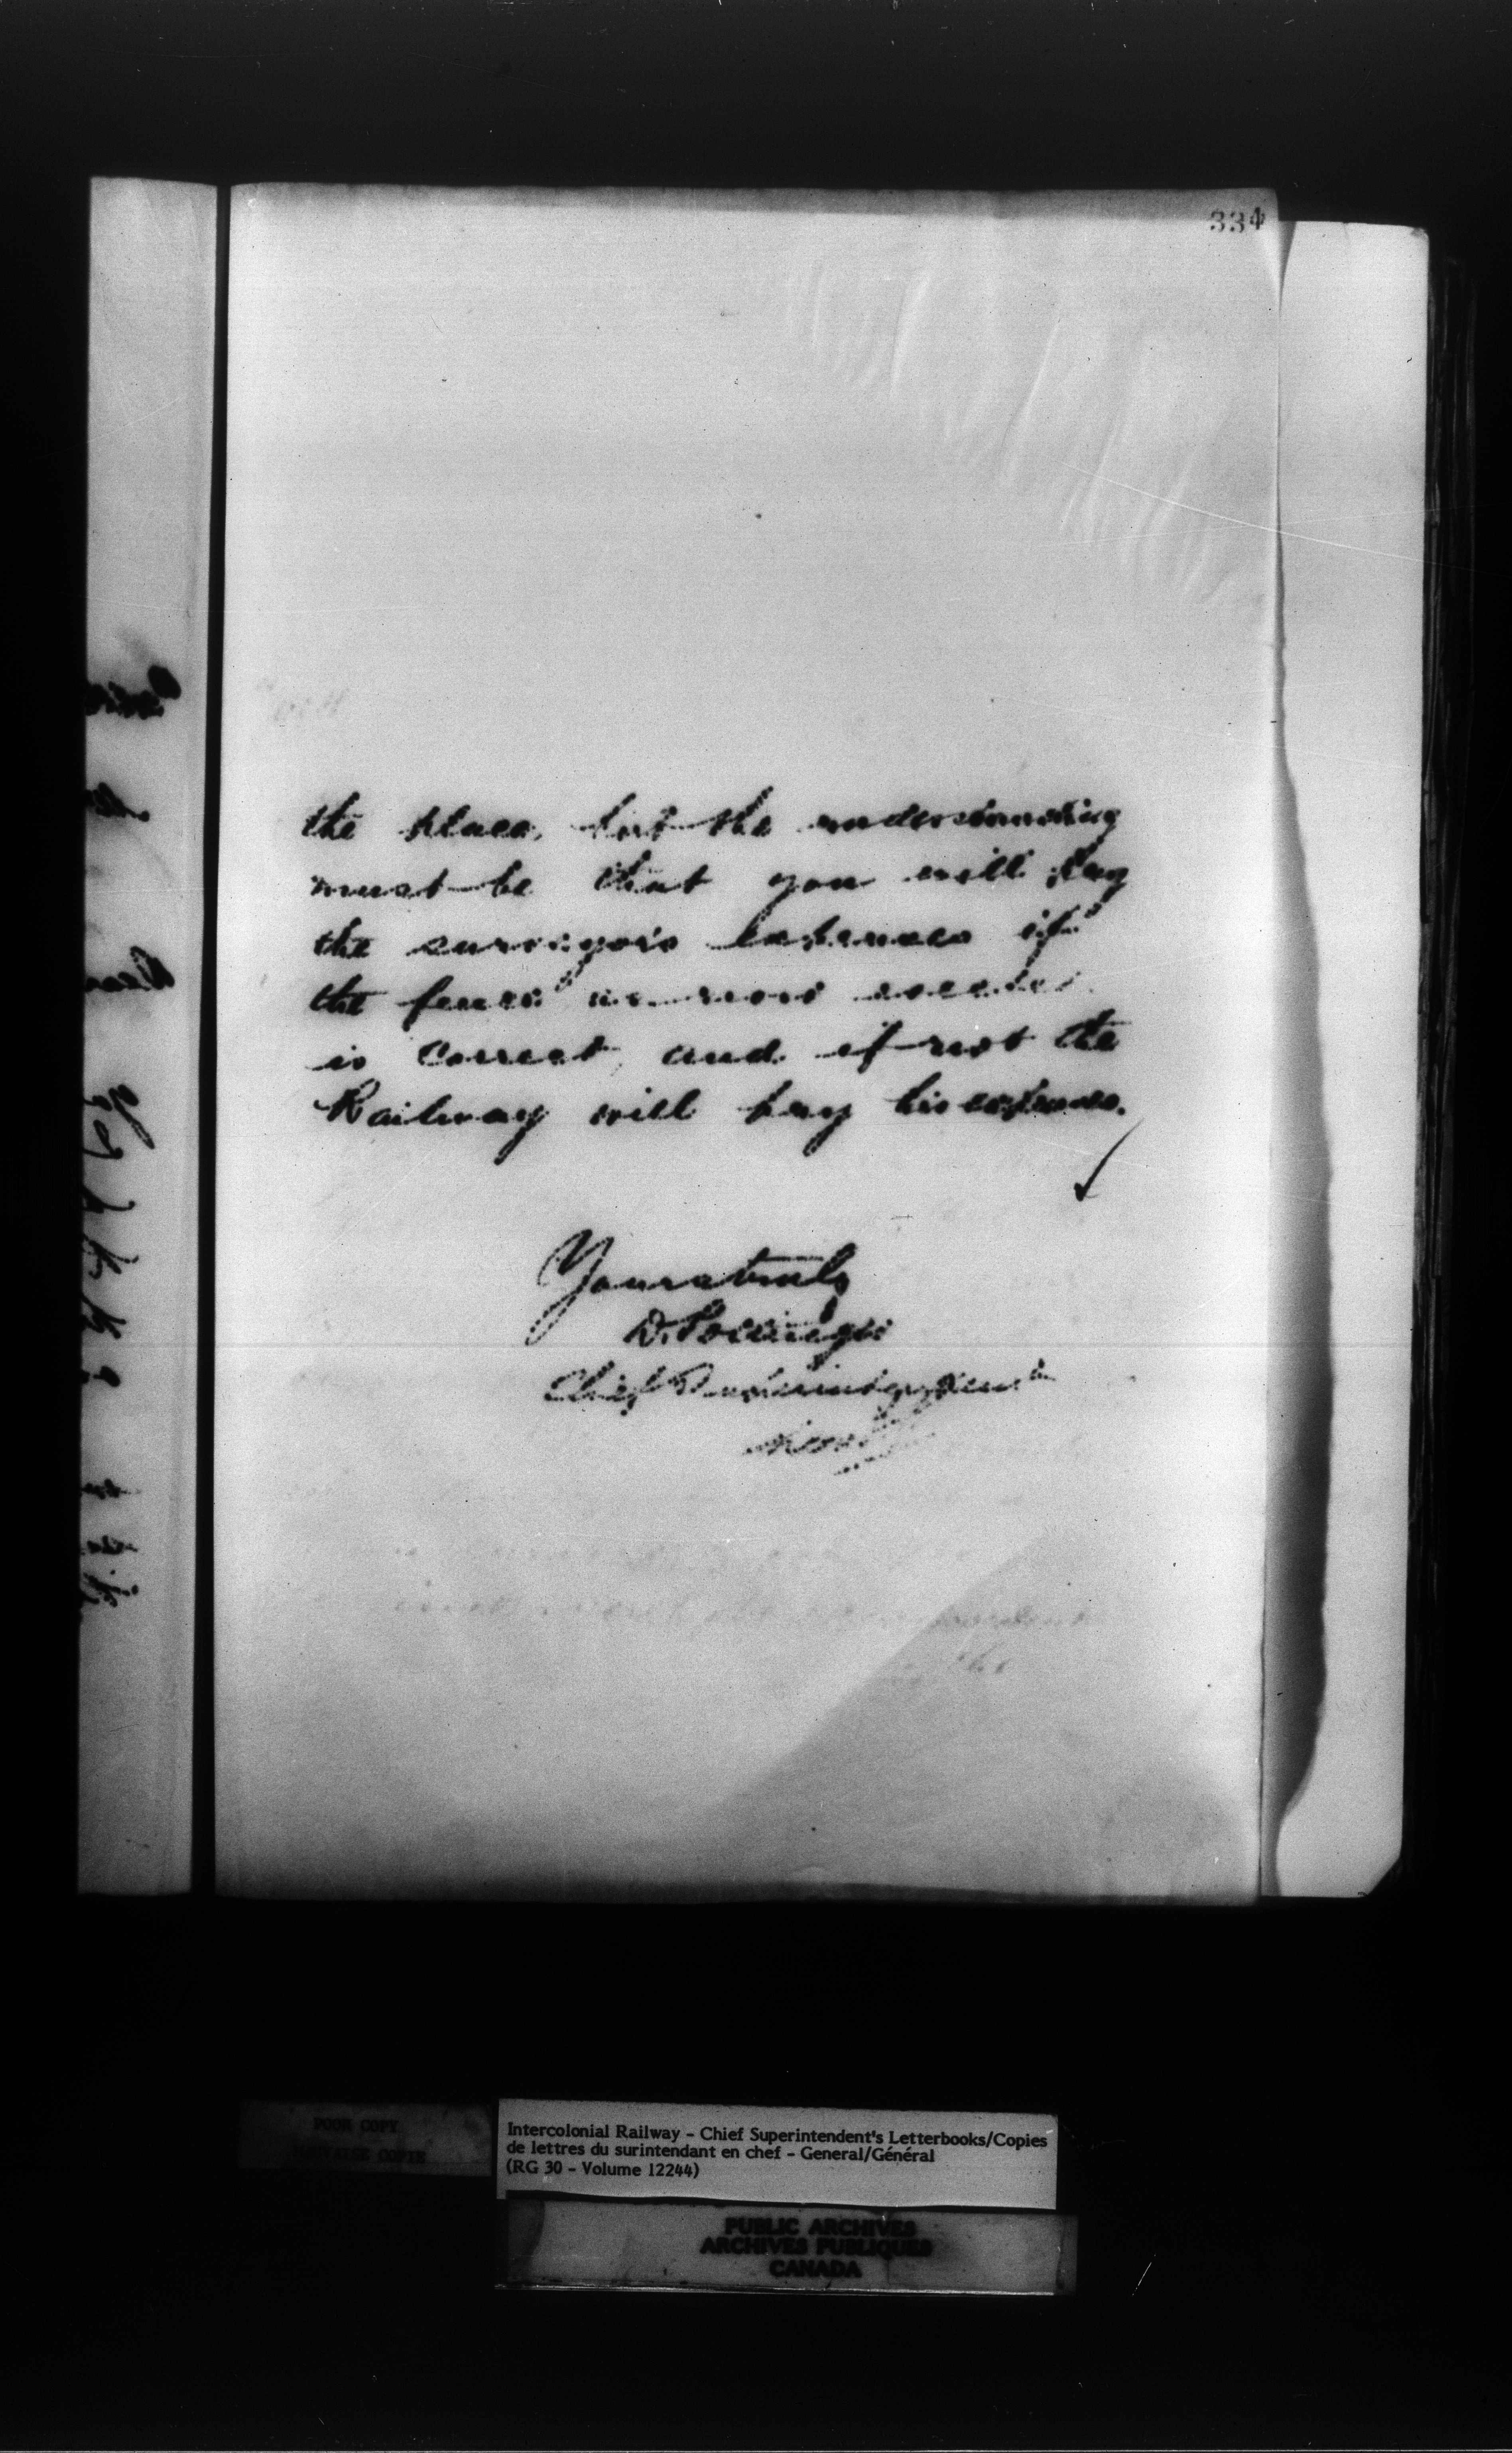 334
the place, but the understanding
must be that you will pay
the surveyor's expenses if
the fence as now
is correct, and if not the
Railway will pay his expenses.
Yours truly
D. Pottinger
Chief Superintendent
POOR COPY
COPIE
Intercolonial Railway - Chief Superintendent's Letterbooks/Copies
de lettres du surintendant en chef - General/Général
(RG 30 - Volume 12244)
PUBLIC ARCHIVES
ARCHIVES PUBLIQUES
CANADA